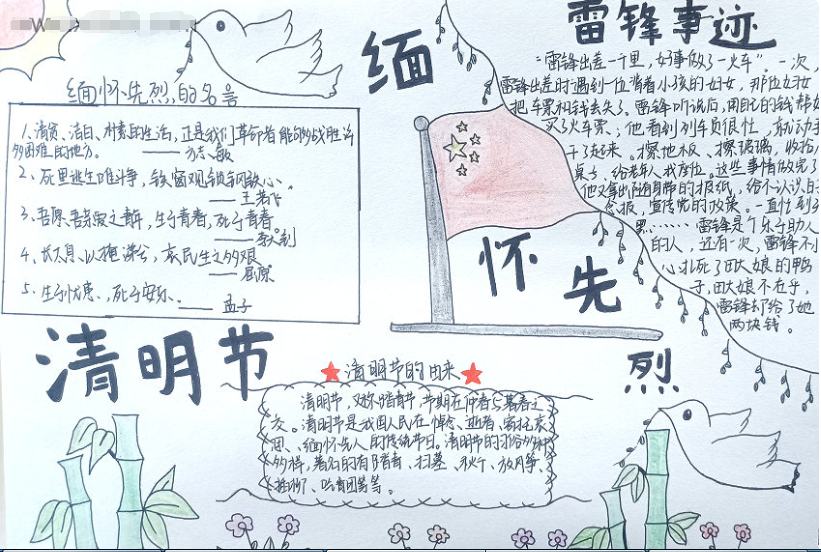 缅怀先烈的名言
1、清贫、洁白、朴素的生活,正是我们革命者能够战胜许
多困难的地方。——方志敏
2、死里逃生唯斗争,铁窗观锁钢铁心。
——王若飞
3、吾愿吾亲爱之青年,生于青春,死于青春。
——李大钊
4、长太息以掩涕兮,哀民生之多艰
——屈原
5、生于忧患,死于安乐。——孟子
清明节
缅
怀
先
烈
雷锋事迹
“雷锋出差一千里,好事做了一火车”。一次,
雷锋出差时遇到一位背着小孩的妇女,那位妇女
把车票和钱丢失了。雷锋听说后,用自己的钱帮她
买了火车票;他看到列车员很忙,就动手
干了起来。擦地板、擦玻璃,收拾小
桌子,给老年人找座位。这些事情做完了
他又拿出随身带的报纸,给不认识字的
念报,宣传党的政策。一直忙到
……雷锋是个乐于助人
的人,还有一次,雷锋不小
心轧死了田大娘的鸭
子,田大娘不在乎,
雷锋却给了她
两块钱。
清明节的由来
清明节,又称踏青节,节期在仲春与暮春之
交。清明节是我国人民在悼念逝者、寄托哀
思、缅怀先人的传统节日。清明节的习俗多种
多样,著名的有踏青、扫墓、秋千、放风筝、
插柳、吃青团等等。